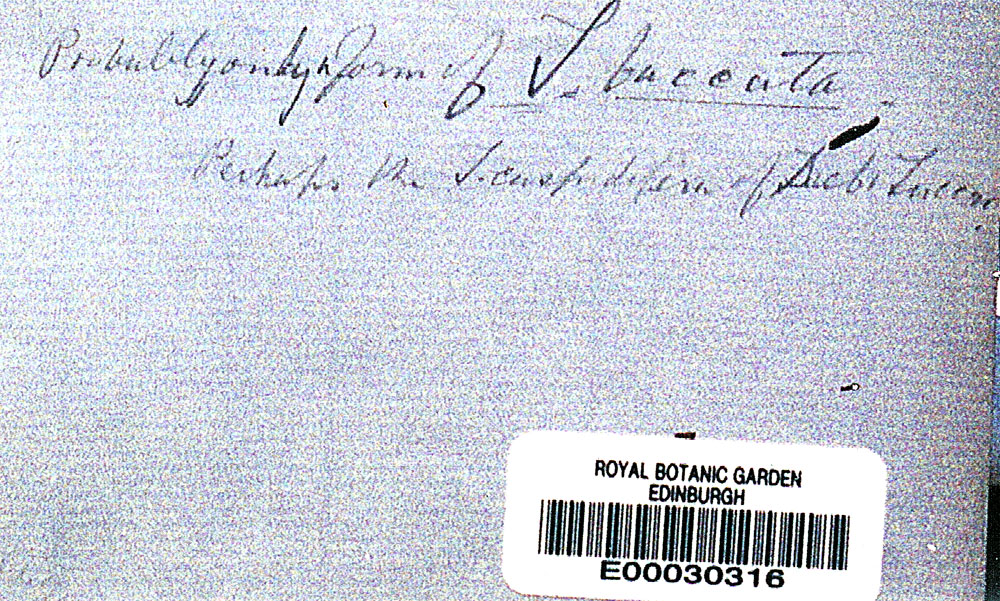 Probably only a form of S. baccata.
Perhaps the S. cuspidifera of
ROYAL BOTANIC GARDEN
EDINBURGH
E00030316